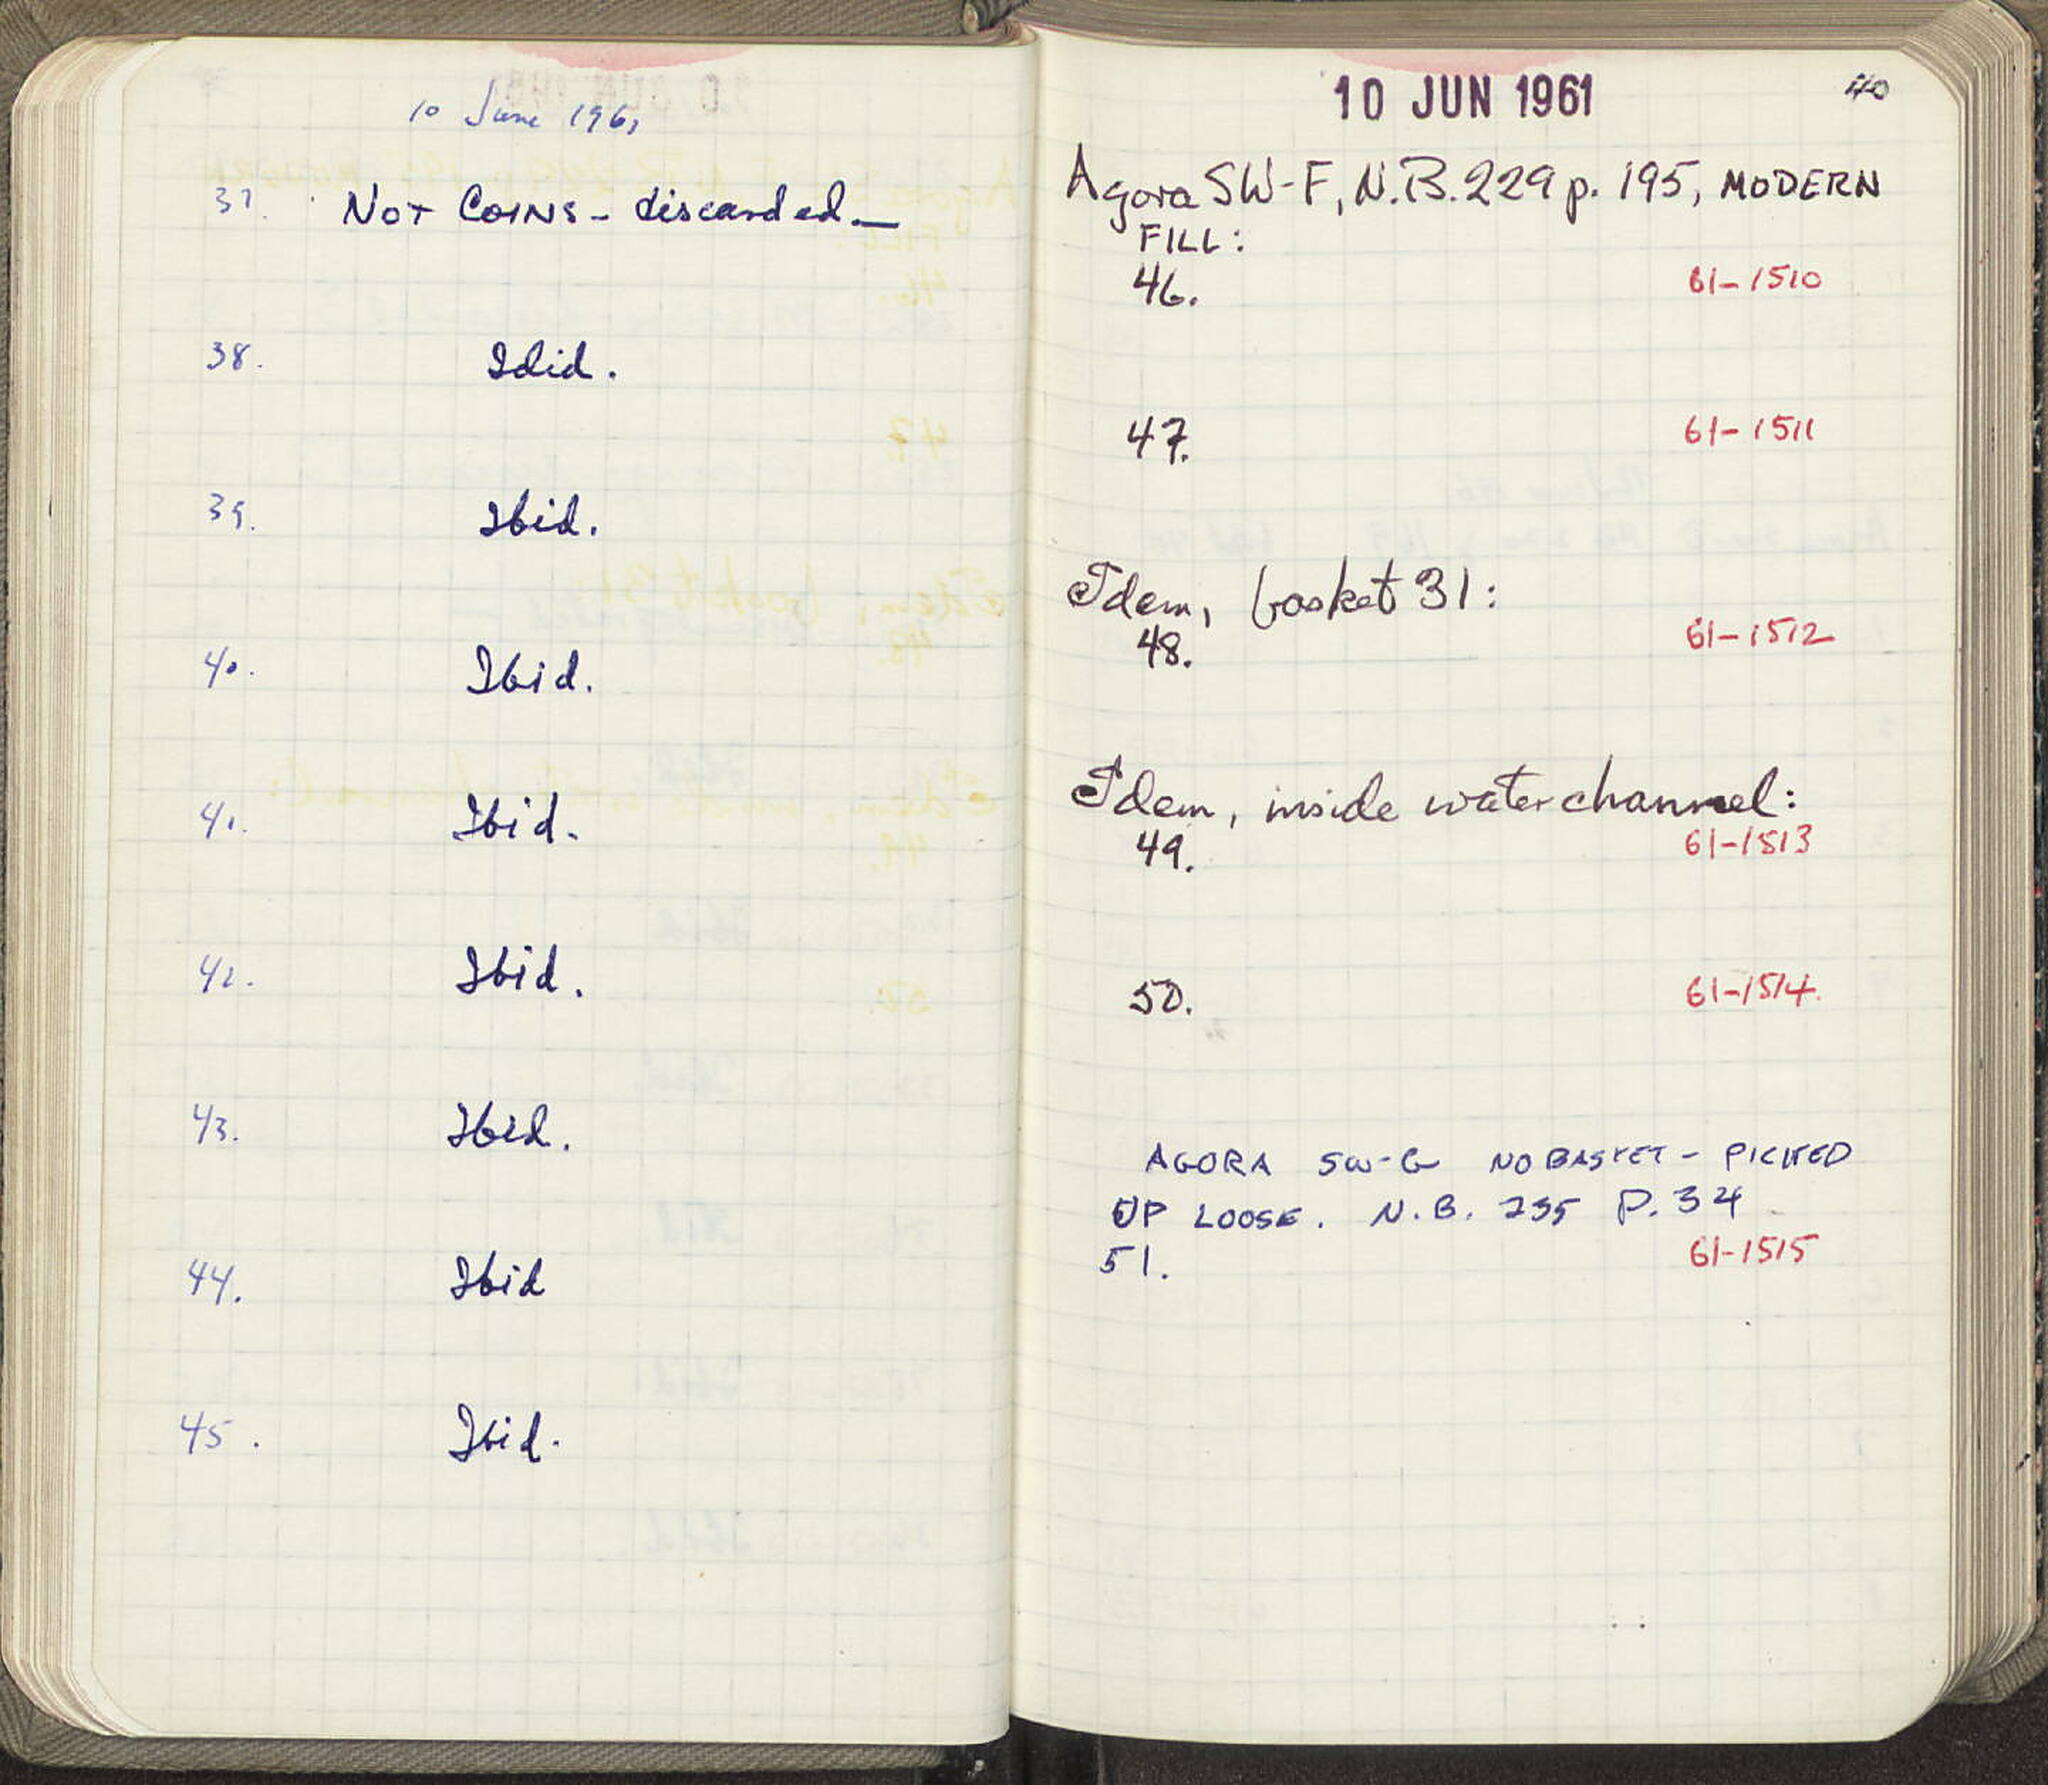 10 June 1961
37. Not Coins - discarded.-
38. Idid.
39. Ibid.
40. Ibid.
41. Ibid.
42. Ibid.
43. Ibid.
44. Ibid
45. Ibid.
10 JUN 1961 40
Agora SW-F, N.B. 229 p. 195, MODERN
FILL:
46. 61-1510
47. 61-1511
Idem, basket 31:
48. 61-1512
Idem, inside waterchannel:
49. 61-1513
50. 61-1514.
AGORA SW-G NO BASKET - PICKED
UP LOOSE. N.B. 235 P. 34
51. 61-1515